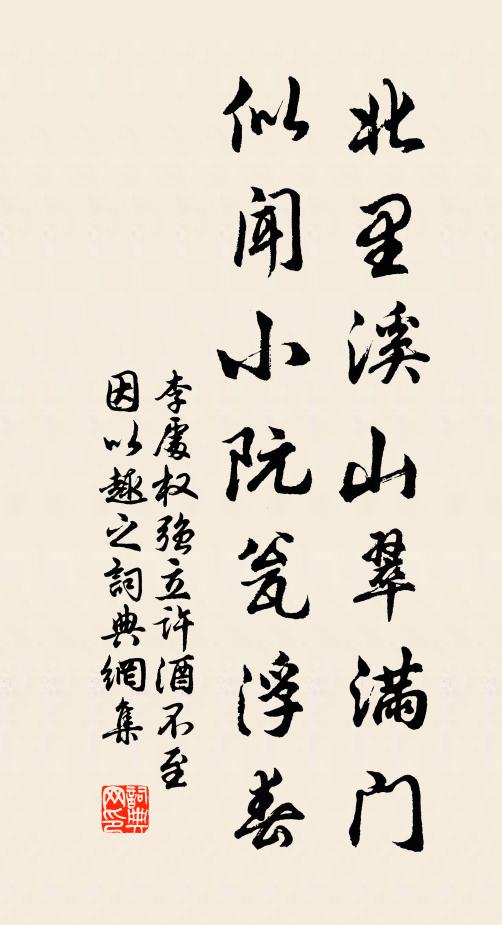 北里溪山翠满门
似闻小阮瓮浮春
李處权强立许酒不至
因以趣之詞典網集
詞典网印